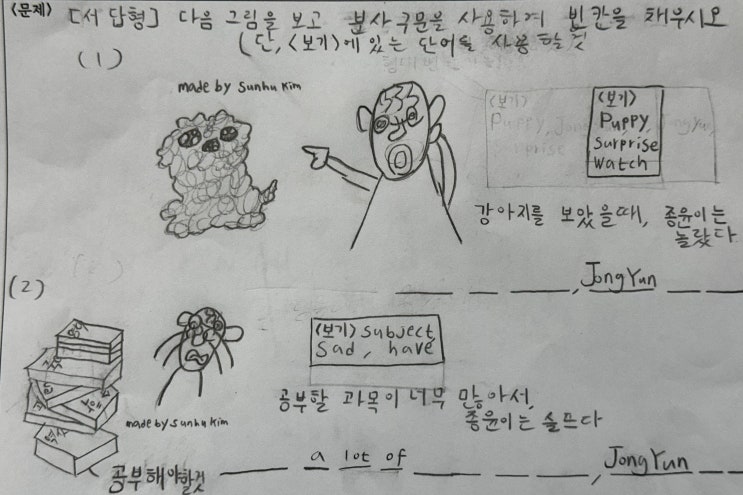 <문제> [서답형] 다음 그림을 보고 분사구문을 사용하여 빈칸을 채우시오
(단, <보기>에 있는 단어를 사용할 것
(1)
made by Sunhu Kim
<보기>
Puppy
Surprise
Watch
강아지를 보았을때, 종윤이는
놀랐다
___ ___ ___, JongYun ___ ___
(2)
영어
국어
과학
역사
made by sunhu Kim
<보기> subject
Sad, have
공부할 과목이 너무 많아서,
종윤이는 슬프다
공부해야할것
___ a lot of ___ ___ ___, JongYun ___ ___